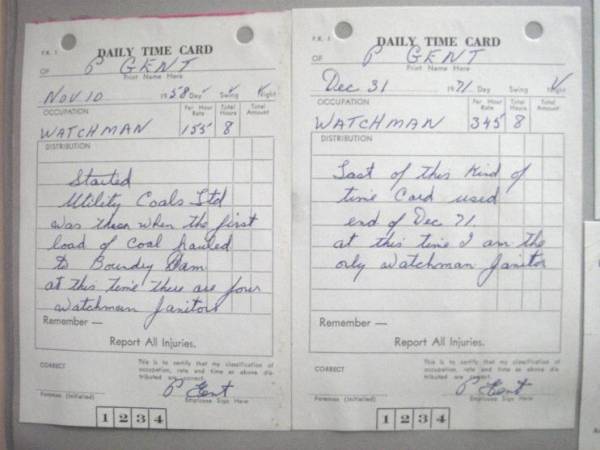 P.R. 1
DAILY TIME CARD
OF P GENT
Print Name Here
Nov 10 1958 Day Swing Night
OCCUPATION Per Hour Rate Total Hours Total Amount
WATCHMAN 155 8
DISTRIBUTION
Started
Utility Coals Ltd
was there when the first
load of coal hauled
to Boundy Dam
at this time there are four
watchman janitors
Remember —
Report All Injuries.
CORRECT
This is to certify that my classification of
occupation, rate and time as above dis-
tributed are correct.
P Gent
Foreman (Initialled) Employee Sign Here
1 2 3 4
P.R. 1
DAILY TIME CARD
OF P GENT
Print Name Here
Dec 31 1971 Day Swing Night
OCCUPATION Per Hour Rate Total Hours Total Amount
WATCHMAN 345 8
DISTRIBUTION
Last of this kind of
time card used
end of Dec 71
at this time I am the
only watchman janitor
Remember —
Report All Injuries.
CORRECT
This is to certify that my classification of
occupation, rate and time as above dis-
tributed are correct.
P Gent
Foreman (Initialled) Employee Sign Here
1 2 3 4